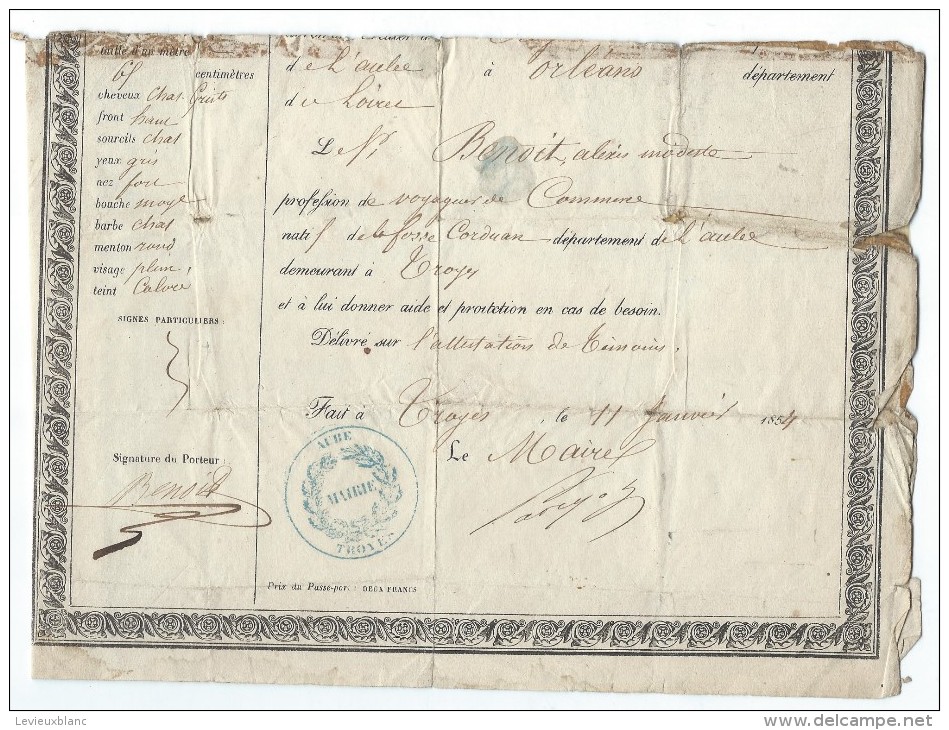 taille d'un mètre
65 centimètres
cheveux chat. gris
front haut
sourcils chat
yeux gris
nez fort
bouche moye
barbe chat
menton rond
visage plein
teint Coloré
SIGNES PARTICULIERS :
Signature du Porteur :
Benoit
de L'aube à Orléans département
du Loiret
Le Sr. Benoit, alexis modeste
profession de voyageur de Commerce
natif de la fosse Corduan département de L'aube
demeurant à Troyes
et à lui donner aide et protection en cas de besoin.
Délivré sur l'attestation de témoins.
Fait à Troyes le 11 Janvier 1854
Le Maire
AUBE
MAIRIE
TROYES
Prix du Passe-port : DEUX FRANCS
Levieuxblanc
www.delcampe.net